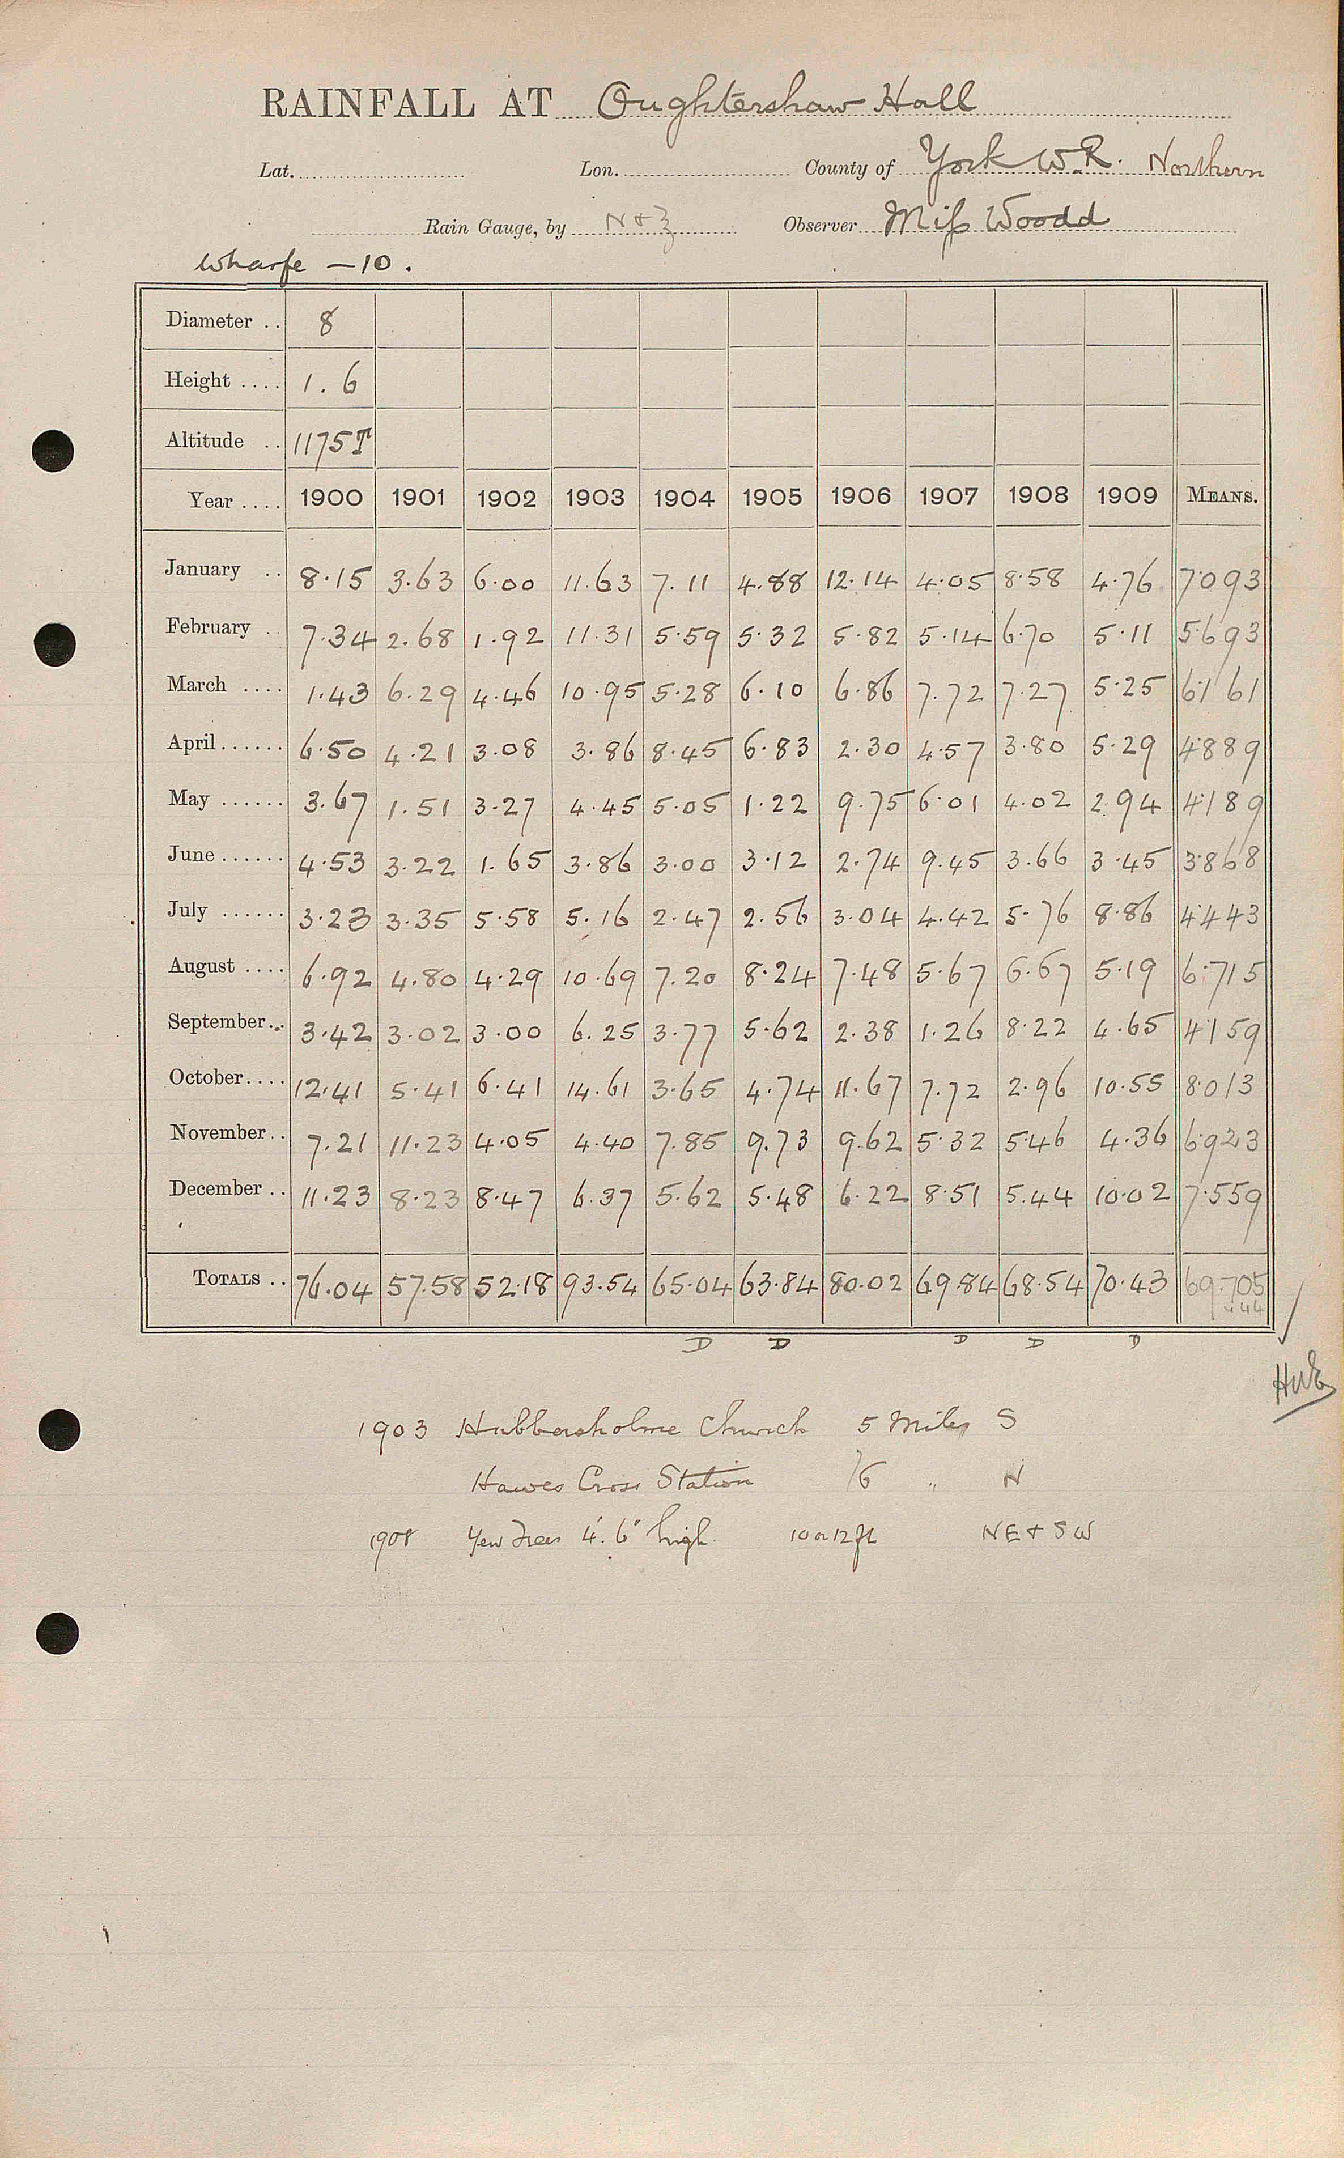 RAINFALL AT Oughtershaw Hall
Lat. Lon. County of York W.R. Northern
Rain Gauge, by N & Z Observer Miss Woodd
Wharfe — 10.
Diameter .. 8
Height .... 1.6
Altitude .. 1175T
Year .... 1900 1901 1902 1903 1904 1905 1906 1907 1908 1909 MEANS.
January .. 8.15 3.63 6.00 11.63 7.11 4.88 12.14 4.05 8.58 4.76 7.093
February .. 7.34 2.68 1.92 11.31 5.59 5.32 5.82 5.14 6.70 5.11 5.693
March .... 1.43 6.29 4.46 10.95 5.28 6.10 6.86 7.72 7.27 5.25 6.161
April...... 6.50 4.21 3.08 3.86 8.45 6.83 2.30 4.57 3.80 5.29 4.889
May ...... 3.67 1.51 3.27 4.45 5.05 1.22 9.75 6.01 4.02 2.94 4.189
June ...... 4.53 3.22 1.65 3.86 3.00 3.12 2.74 9.45 3.66 3.45 3.868
July ...... 3.23 3.35 5.58 5.16 2.47 2.56 3.04 4.42 5.76 8.86 4.443
August .... 6.92 4.80 4.29 10.69 7.20 8.24 7.48 5.67 6.67 5.19 6.715
September... 3.42 3.02 3.00 6.25 3.77 5.62 2.38 1.26 8.22 4.65 4.159
October.... 12.41 5.41 6.41 14.61 3.65 4.74 11.67 7.72 2.96 10.55 8.013
November.. 7.21 11.23 4.05 4.40 7.85 9.73 9.62 5.32 5.46 4.36 6.923
December .. 11.23 8.23 8.47 6.37 5.62 5.48 6.22 8.51 5.44 10.02 7.559
TOTALS .. 76.04 57.58 52.18 93.54 65.04 63.84 80.02 69.84 68.54 70.43 69.705
D D D D D
1903 Hubbersholme Church 5 Miles S
Hawes Cross Station 6 " N
1908 Yew Trees 4' 6" high. 10 or 12 ft NE & SW